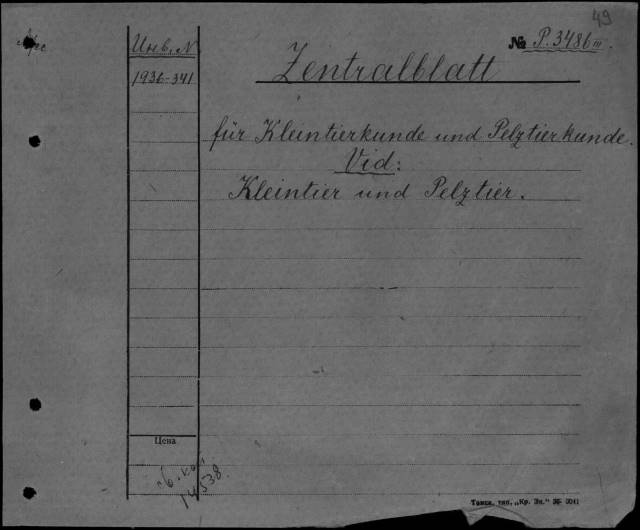 49
Инв. N
№ P. 3486 III.
Zentralblatt
1936-341
für Kleintierkunde und Pelztierkunde.
Vid:
Kleintier und Pelztier.
Цена
14538
Томск. тип. „Кр. Зн."